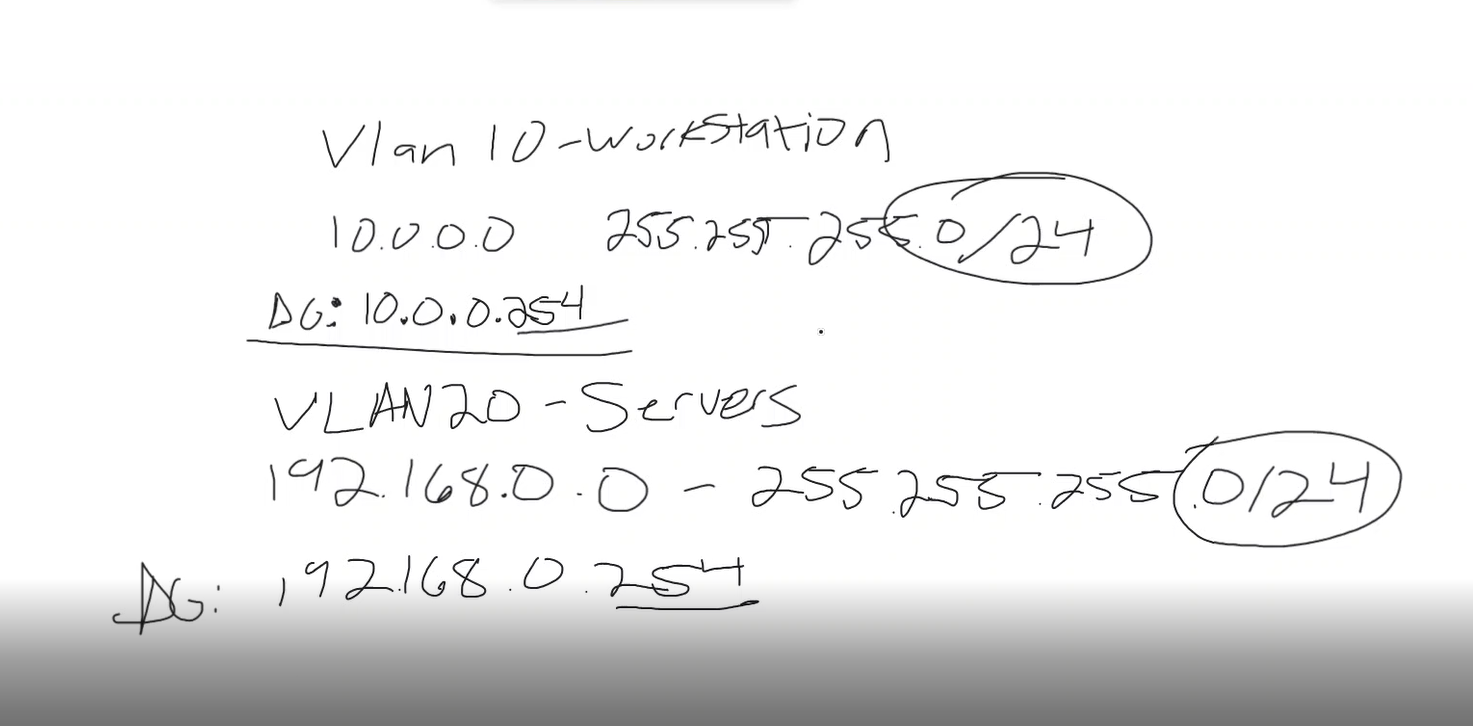 Vlan 10-Workstation
10.0.0.0 255.255.255.0/24
DG: 10.0.0.254
VLAN20-Servers
192.168.0.0 - 255.255.255.0/24
DG: 192.168.0.254